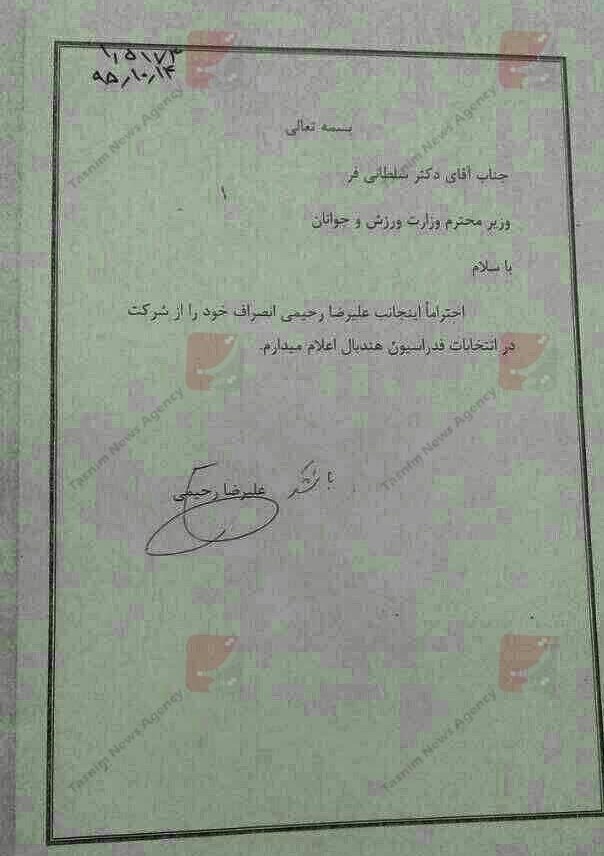 ۱٫۵۱۷۳
۹۵٫۱۰٫۱۴
بسمه تعالی
جناب آقای دکتر سلطانی فر
وزیر محترم وزارت ورزش و جوانان
با سلام
احتراماً اینجانب علیرضا رحیمی انصراف خود را از شرکت
در انتخابات فدراسیون هندبال اعلام میدارم.
با تشکر
علیرضا رحیمی
Tasnim News Agency
Tasnim News Agency
Tasnim News Agency
Tasnim News Agency
Tasnim News Agency
Tasnim News Agency